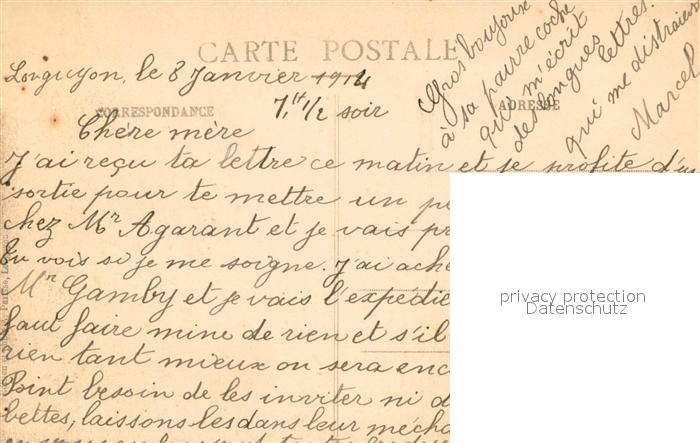 CARTE POSTALE
Longuyon, le 8 Janvier 1914
CORRESPONDANCE
ADRESSE
7,H 1/2 soir
Chère mère
J'ai reçu ta lettre ce matin et je profite d'u
sortie pour te mettre un p
chez Mr Agarant et je vais pr
Tu vois si je me soigne. J'ai ache
Mr Gamby et je vais l'expédie
faut faire mine de rien et s'il
rien tant mieux on sera enc
Point besoin de les inviter ni d
bettes, laissons les dans leur mécha
Gros boujoux
à sa pauvre coche
qu'il m'écrit
de longues lettres.
qui me distraien
Marcel
privacy protection
Datenschutz